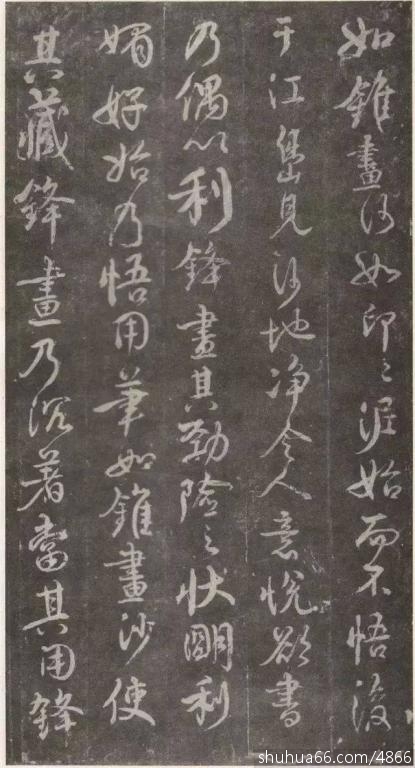 如錐畫沙如印々泥始而不悟後
于江島見沙地净令人意悅欲書
乃偶以利鋒畫其勁險之狀明利
媚好始乃悟用筆如錐畫沙使
其藏鋒畫乃沉著當其用鋒
shuhua66.com/4866